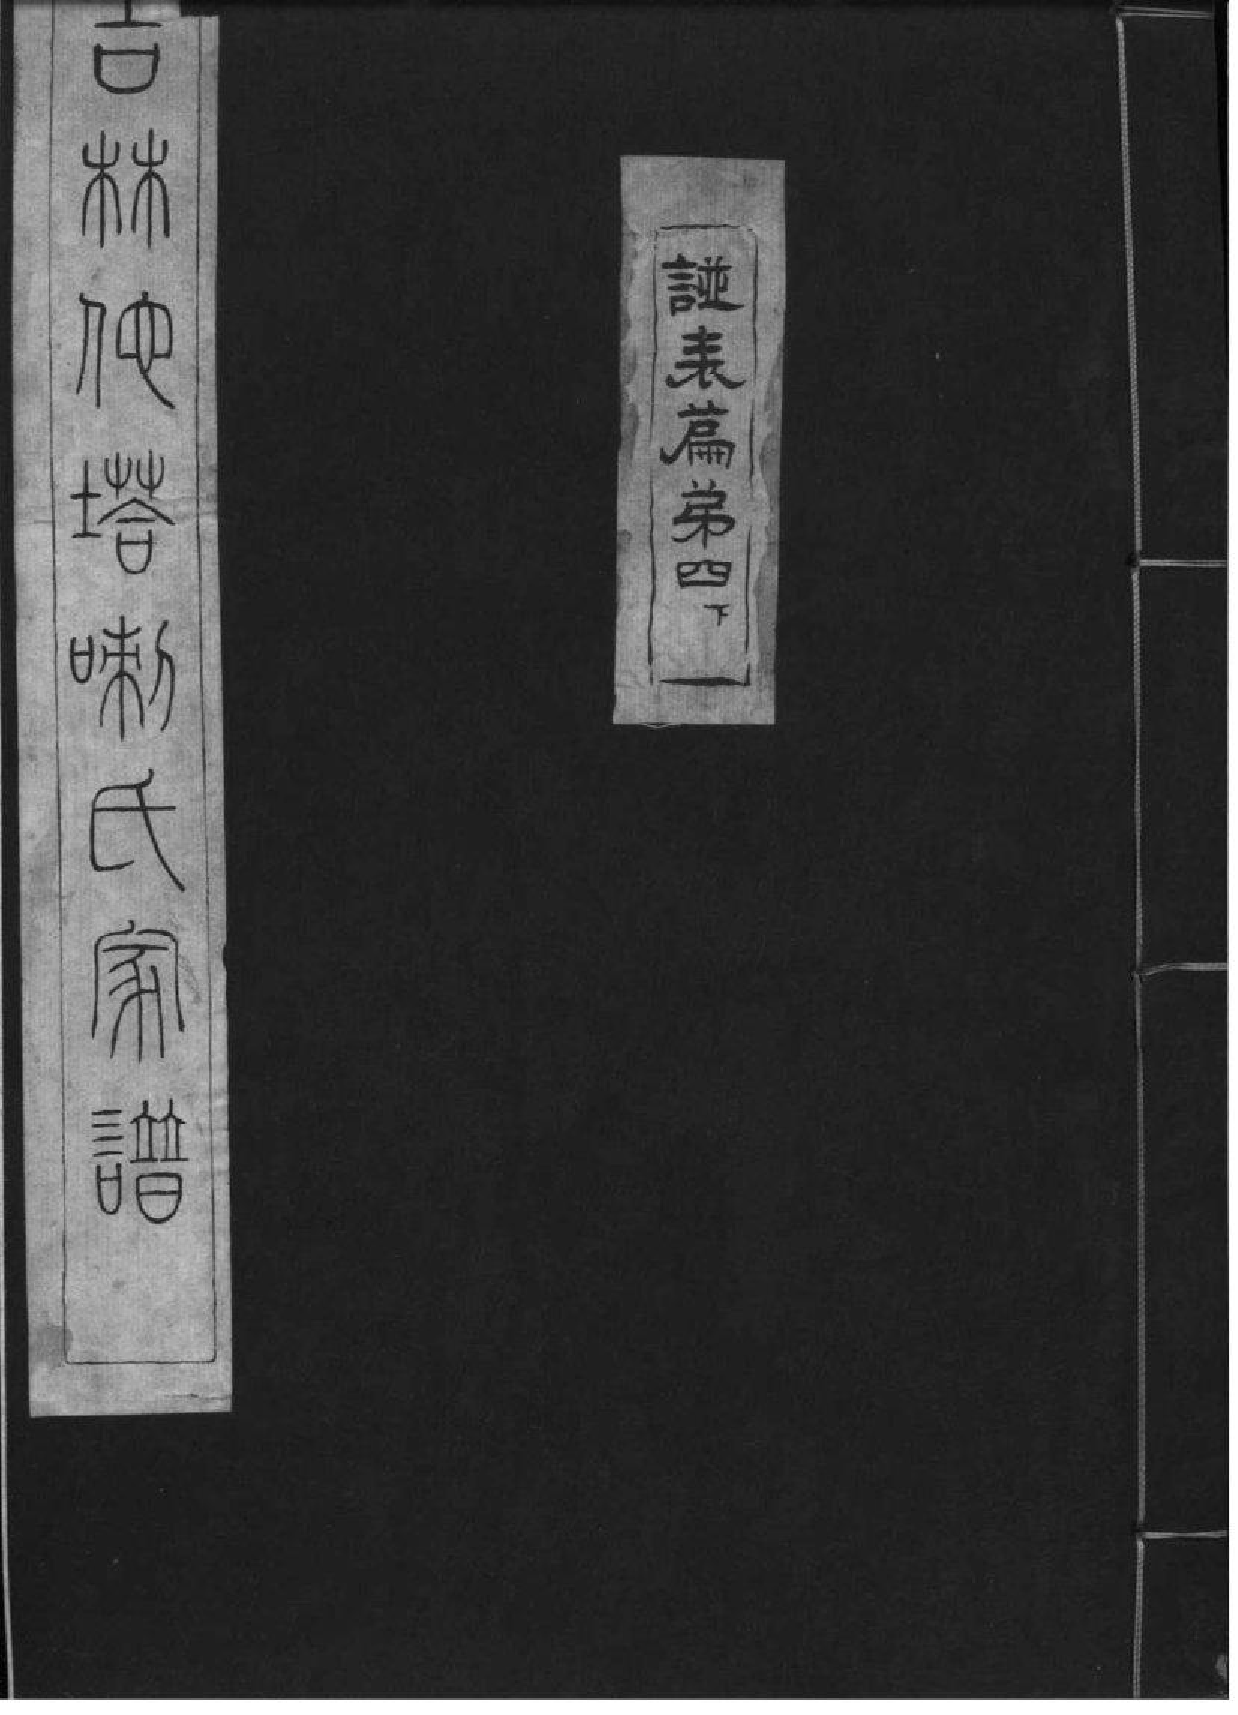 吉林他塔喇氏家譜
譜表篇弟四下